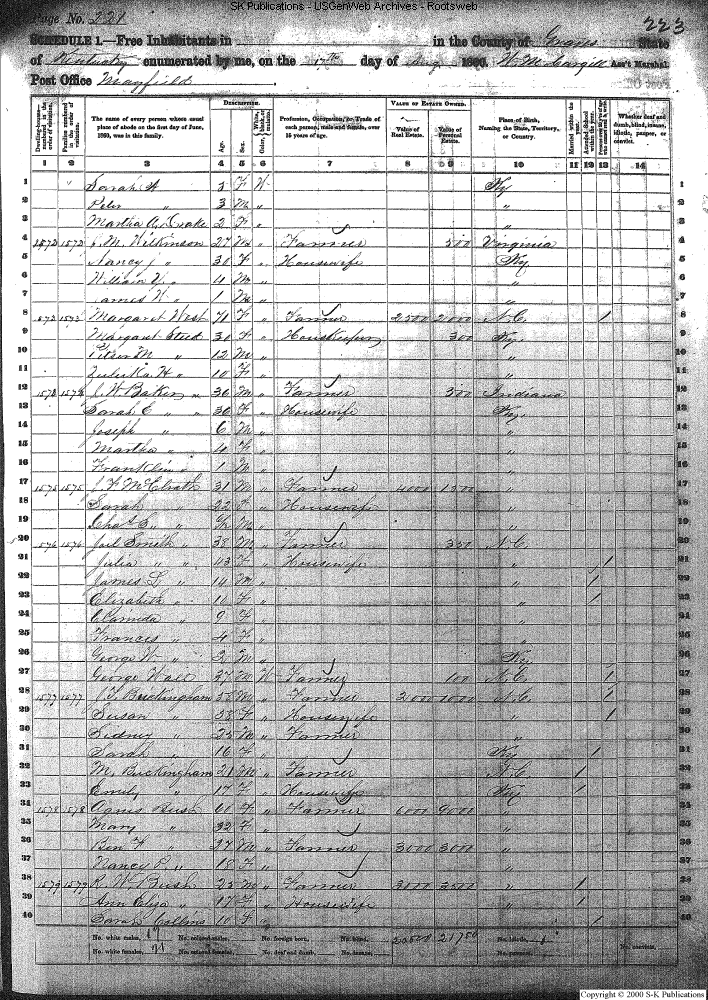 S-K Publications - USGenWeb Archives - Rootsweb
Page No. 221
223
SCHEDULE 1.—Free Inhabitants in in the County of Graves State
of Kentucky enumerated by me, on the 17th day of Aug 1860. Ass't Marshal.
Post Office Mayfield
Dwelling-houses—numbered in the order of visitation.
Families numbered in the order of visitation.
The name of every person whose usual place of abode on the first day of June, 1860, was in this family.
DESCRIPTION.
Age.
Sex.
Profession, Occupation, or Trade of each person, male and female, over 15 years of age.
VALUE OF ESTATE OWNED.
Value of Real Estate.
Value of Personal Estate.
Place of Birth, Naming the State, Territory, or Country.
Married within the year.
Whether deaf and dumb, blind, insane, idiotic, pauper, or convict.
1 2 3 4 5 6 7 8 9 10 11 12 13 14
1 Sarah 3 F W Ky 1
2 Peter " 3 M " " 2
3 Martha A. Drake 2 F " " 3
4 1572 1572 J. M. Wilkinson 27 M " Farmer 500 Virginia 4
5 Nancy J " 30 F " Housewife Ky 5
6 William " 4 M " " 6
7 James W " 1 M " " 7
8 1573 1573 Margaret West 71 F " Farmer 2500 2000 N.C. / 8
9 Margaret Steed 30 F " Housekeeper 300 Ky 9
10 M " 12 M " " 10
11 " 10 F " " 11
12 1574 1574 J. W. Baker 36 M " Farmer 300 Indiana 12
13 Sarah E " 30 F " Housewife Ky 13
14 Joseph " 6 M " " 14
15 Martha " 4 F " " 15
16 Franklin " 1 M " " 16
17 1575 1575 J F McElrath 31 M " Farmer 4000 1500 " 17
18 Sarah " 22 F " Housewife " 18
19 Chas. E. " M " " 19
20 1576 1576 Smith " 38 M " Farmer 350 N.C. 20
21 Julia " 43 F " Housewife " / 21
22 James L " 14 M " " / 22
23 Elizabeth " 10 F " " / 23
24 Clamida " 9 F " " 24
25 Frances " 4 F " " 25
26 George W " 2 M " Ky 26
27 George Hall 27 M W Farmer 100 N.C. / 27
28 1577 1577 J. T. Buckingham 58 M " Farmer 2000 1000 N.C. / 28
29 Susan " 53 F " Housewife " / 29
30 Sidney " 25 M " Farmer " 30
31 Sarah " 16 F " Ky / 31
32 M. Buckingham 21 M " Farmer N.C. / 32
33 Emily " 17 F " Housewife Ky / 33
34 1578 1578 Agnes Bush 60 F " Farmer 6000 9000 " 34
35 Mary " 32 F " " 35
36 Ben F " 27 M " Farmer 3000 3000 " 36
37 Nancy P. " 18 F " " 37
38 1579 1579 R. W. Bush 25 M " Farmer 3000 3500 " / 38
39 Ann Eliza " 17 F " Housewife " / 39
40 Sarah Collins 10 F " / 40
No. white males, 19 No. colored males, No. foreign born, No. blind, No. idiotic,
No. white females, 21 No. colored females, No. deaf and dumb, No. insane, No. paupers, No. convicts,
Copyright © 2000 S-K Publications